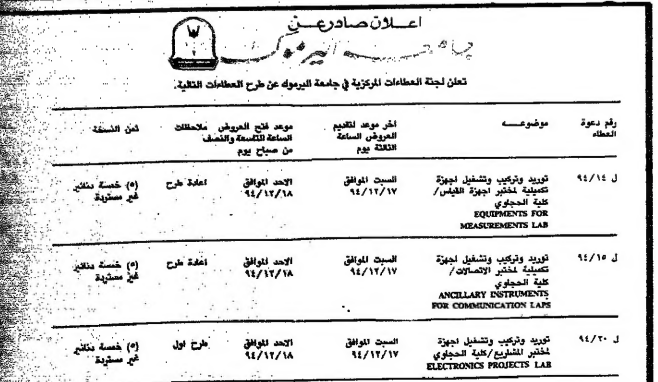 اعلان صادر عن
جامعة اليرموك
تعلن لجنة العطاءات المركزية في جامعة اليرموك عن طرح العطاءات التالية.
رقم دعوة العطاء
موضوعه
اخر موعد لتقديم العروض الساعة الثالثة يوم
موعد فتح العروض الساعة التاسعة والنصف من صباح يوم
ملاحظات
ثمن النسخة
ل ٩٤/١٤
توريد وتركيب وتشغيل اجهزة
تكميلية لمختبر اجهزة القياس/
كلية الحجاوي
EQUIPMENTS FOR
MEASUREMENTS LAB
السبت الموافق
٩٤/١٢/١٧
الاحد الموافق
٩٤/١٢/١٨
اعادة طرح
(٥) خمسة دنانير
غير مستردة
ل ٩٤/١٥
توريد وتركيب وتشغيل اجهزة
تكميلية لمختبر الاتصالات/
كلية الحجاوي
ANCILLARY INSTRUMENTS
FOR COMMUNICATION LAPS
السبت الموافق
٩٤/١٢/١٧
الاحد الموافق
٩٤/١٢/١٨
اعادة طرح
(٥) خمسة دنانير
غير مستردة
ل ٩٤/٢٠
توريد وتركيب وتشغيل اجهزة
لمختبر المشاريع/كلية الحجاوي
ELECTRONICS PROJECTS LAB
السبت الموافق
٩٤/١٢/١٧
الاحد الموافق
٩٤/١٢/١٨
طرح اول
(٥) خمسة دنانير
غير مستردة